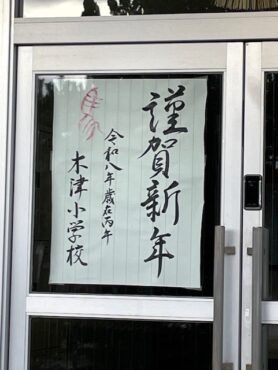 謹賀新年
令和八年歳在丙午
木津小学校